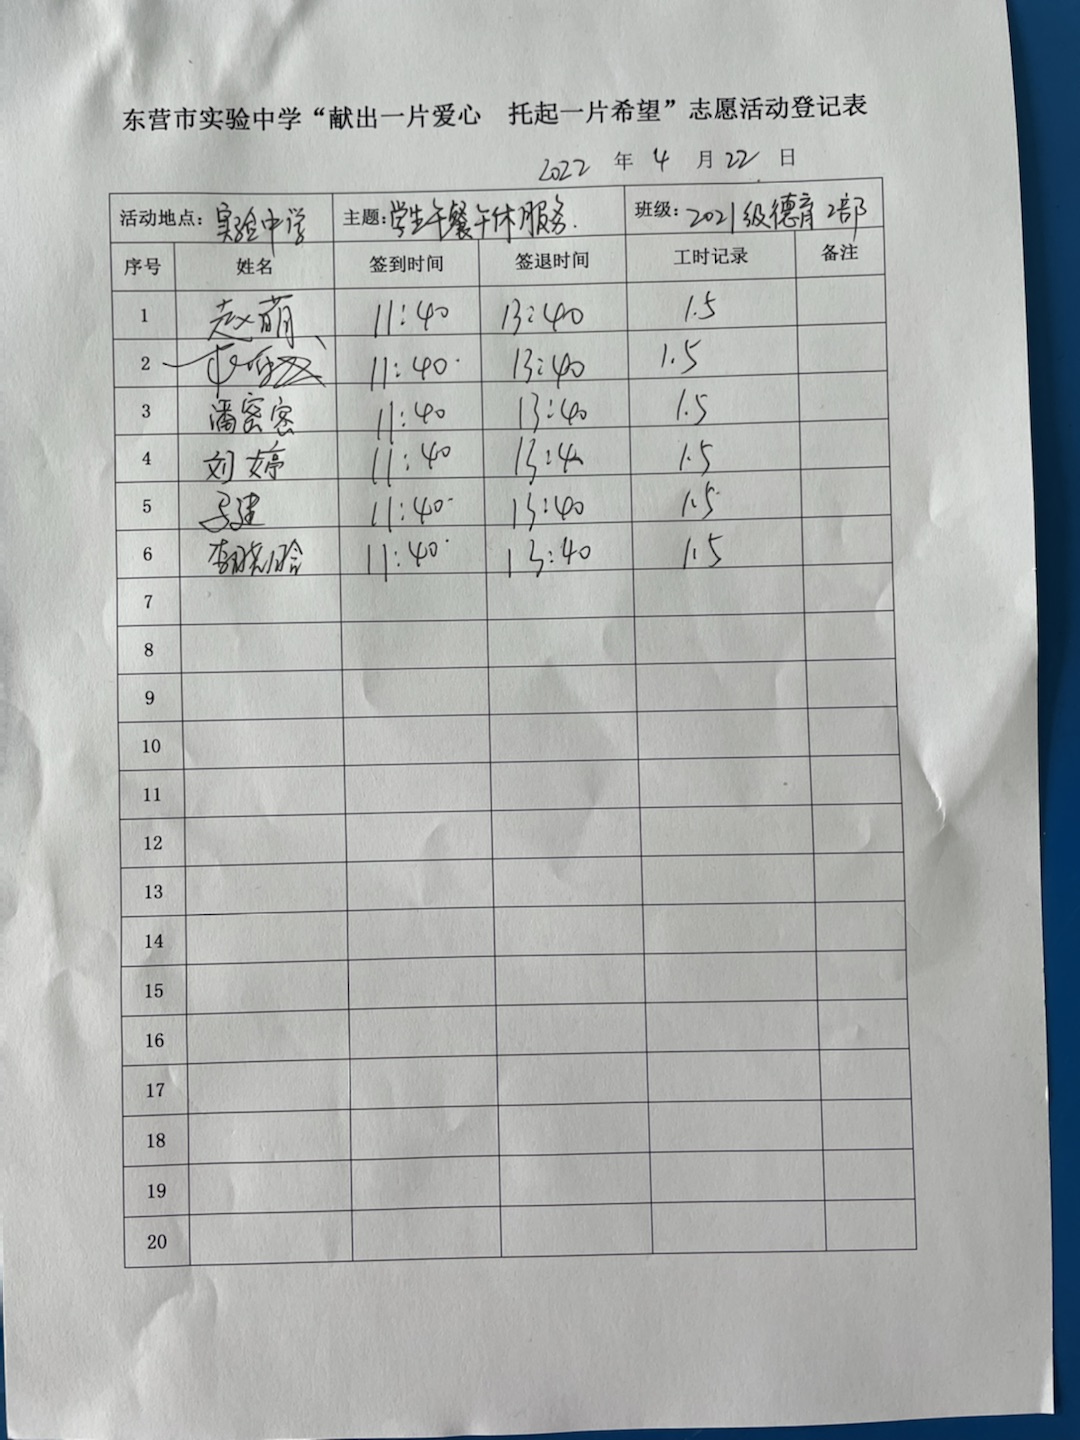 东营市实验中学“献出一片爱心 托起一片希望”志愿活动登记表
2022 年 4 月 22 日
活动地点: 实验中学 主题: 学生午餐午休服务. 班级: 2021级德育2部
序号 姓名 签到时间 签退时间 工时记录 备注
1 赵萌 11:40 13:40 1.5
2 11:40 13:40 1.5
3 潘密密 11:40 13:40 1.5
4 刘婷 11:40 13:40 1.5
5 马建 11:40 13:40 1.5
6 李晓晗 11:40 13:40 1.5
7
8
9
10
11
12
13
14
15
16
17
18
19
20